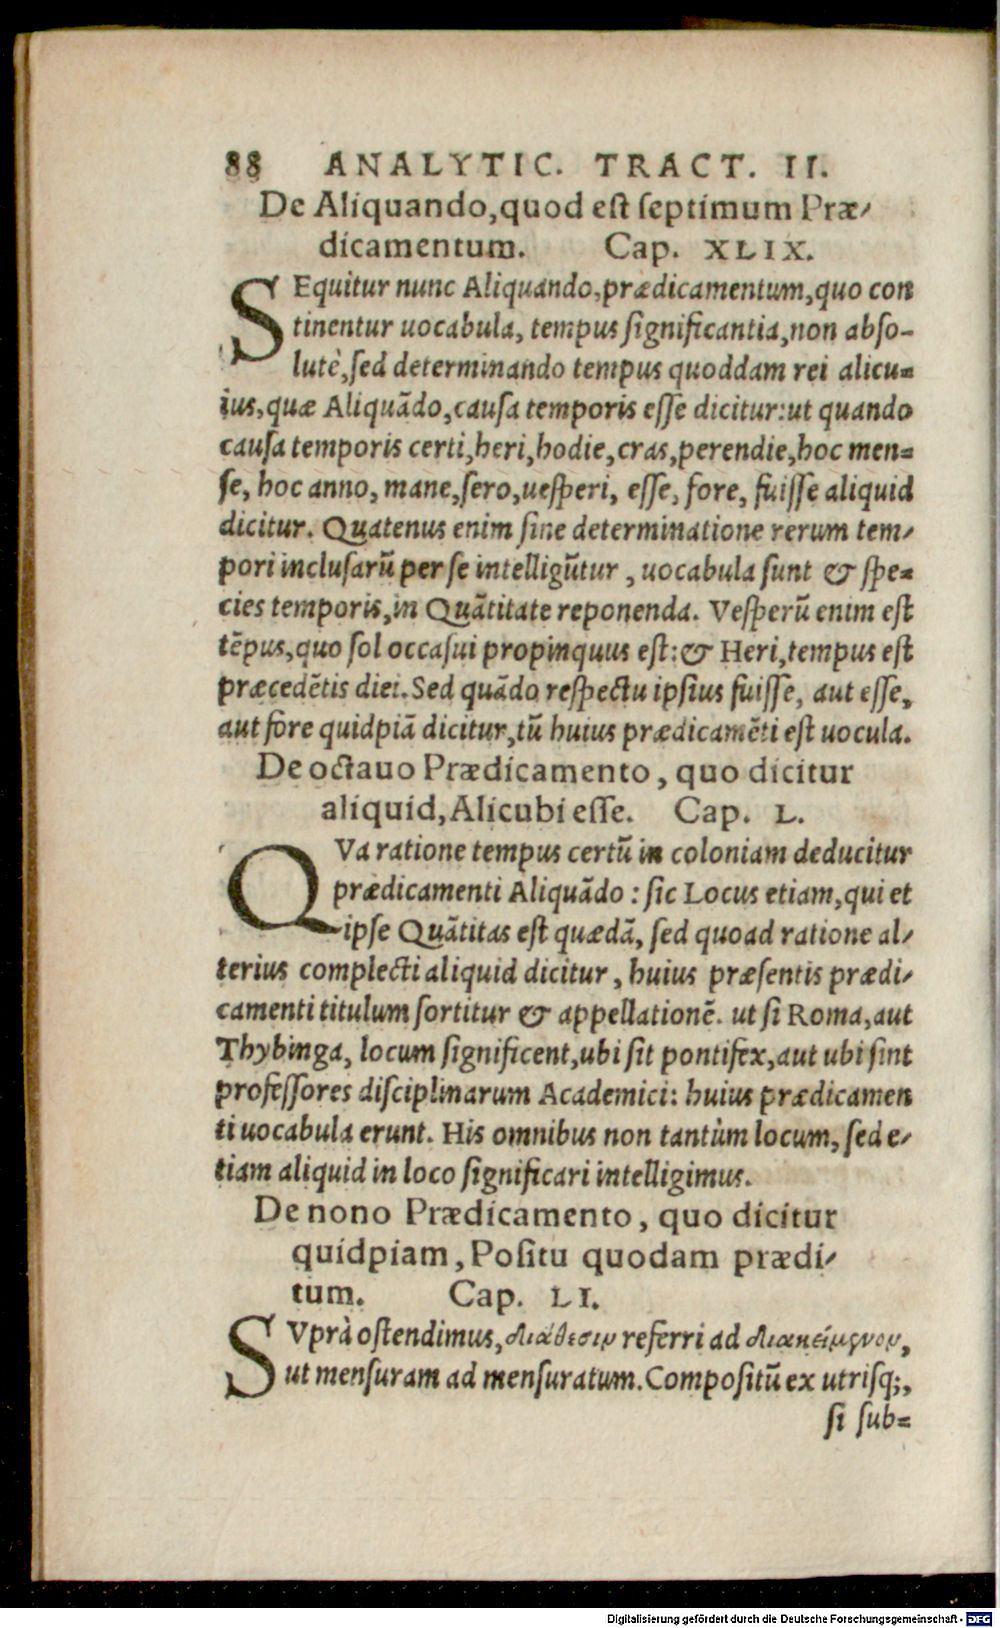 88 ANALYTIC. TRACT. II.
De Aliquando, quod est septimum Præ-
dicamentum. Cap. XLIX.
SEquitur nunc Aliquando, prædicamentum, quo con
tinentur uocabula, tempus significantia, non abso-
lutè, sed determinando tempus quoddam rei alicu-
ius, quæ Aliquãdo, causa temporis esse dicitur: ut quando
causa temporis certi, heri, hodie, cras, perendie, hoc men-
se, hoc anno, mane, sero, uesperi, esse, fore, fuisse aliquid
dicitur. Quatenus enim sine determinatione rerum tem-
pori inclusarũ per se intelligũtur, uocabula sunt & spe-
cies temporis, in Quãtitate reponenda. Vesperũ enim est
tẽpus, quo sol occasui propinquus est: & Heri, tempus est
præcedẽtis diei. Sed quãdo respectu ipsius fuisse, aut esse,
aut fore quidpiã dicitur, tũ huius prædicamẽti est uocula.
De octauo Prædicamento, quo dicitur
aliquid, Alicubi esse. Cap. L.
QVa ratione tempus certũ in coloniam deducitur
prædicamenti Aliquãdo: sic Locus etiam, qui et
ipse Quãtitas est quædã, sed quoad ratione al-
terius complecti aliquid dicitur, huius præsentis prædi-
camenti titulum sortitur & appellationẽ. ut si Roma, aut
Thybinga, locum significent, ubi sit pontifex, aut ubi sint
professores disciplinarum Academici: huius prædicamen
ti uocabula erunt. His omnibus non tantùm locum, sed e-
tiam aliquid in loco significari intelligimus.
De nono Prædicamento, quo dicitur
quidpiam, Positu quodam prædi-
tum. Cap. LI.
SVprà ostendimus, διάθεσιν referri ad διακείμενον,
ut mensuram ad mensuratum. Compositũ ex utrisq;,
si sub-
Digitalisierung gefördert durch die Deutsche Forschungsgemeinschaft - DFG